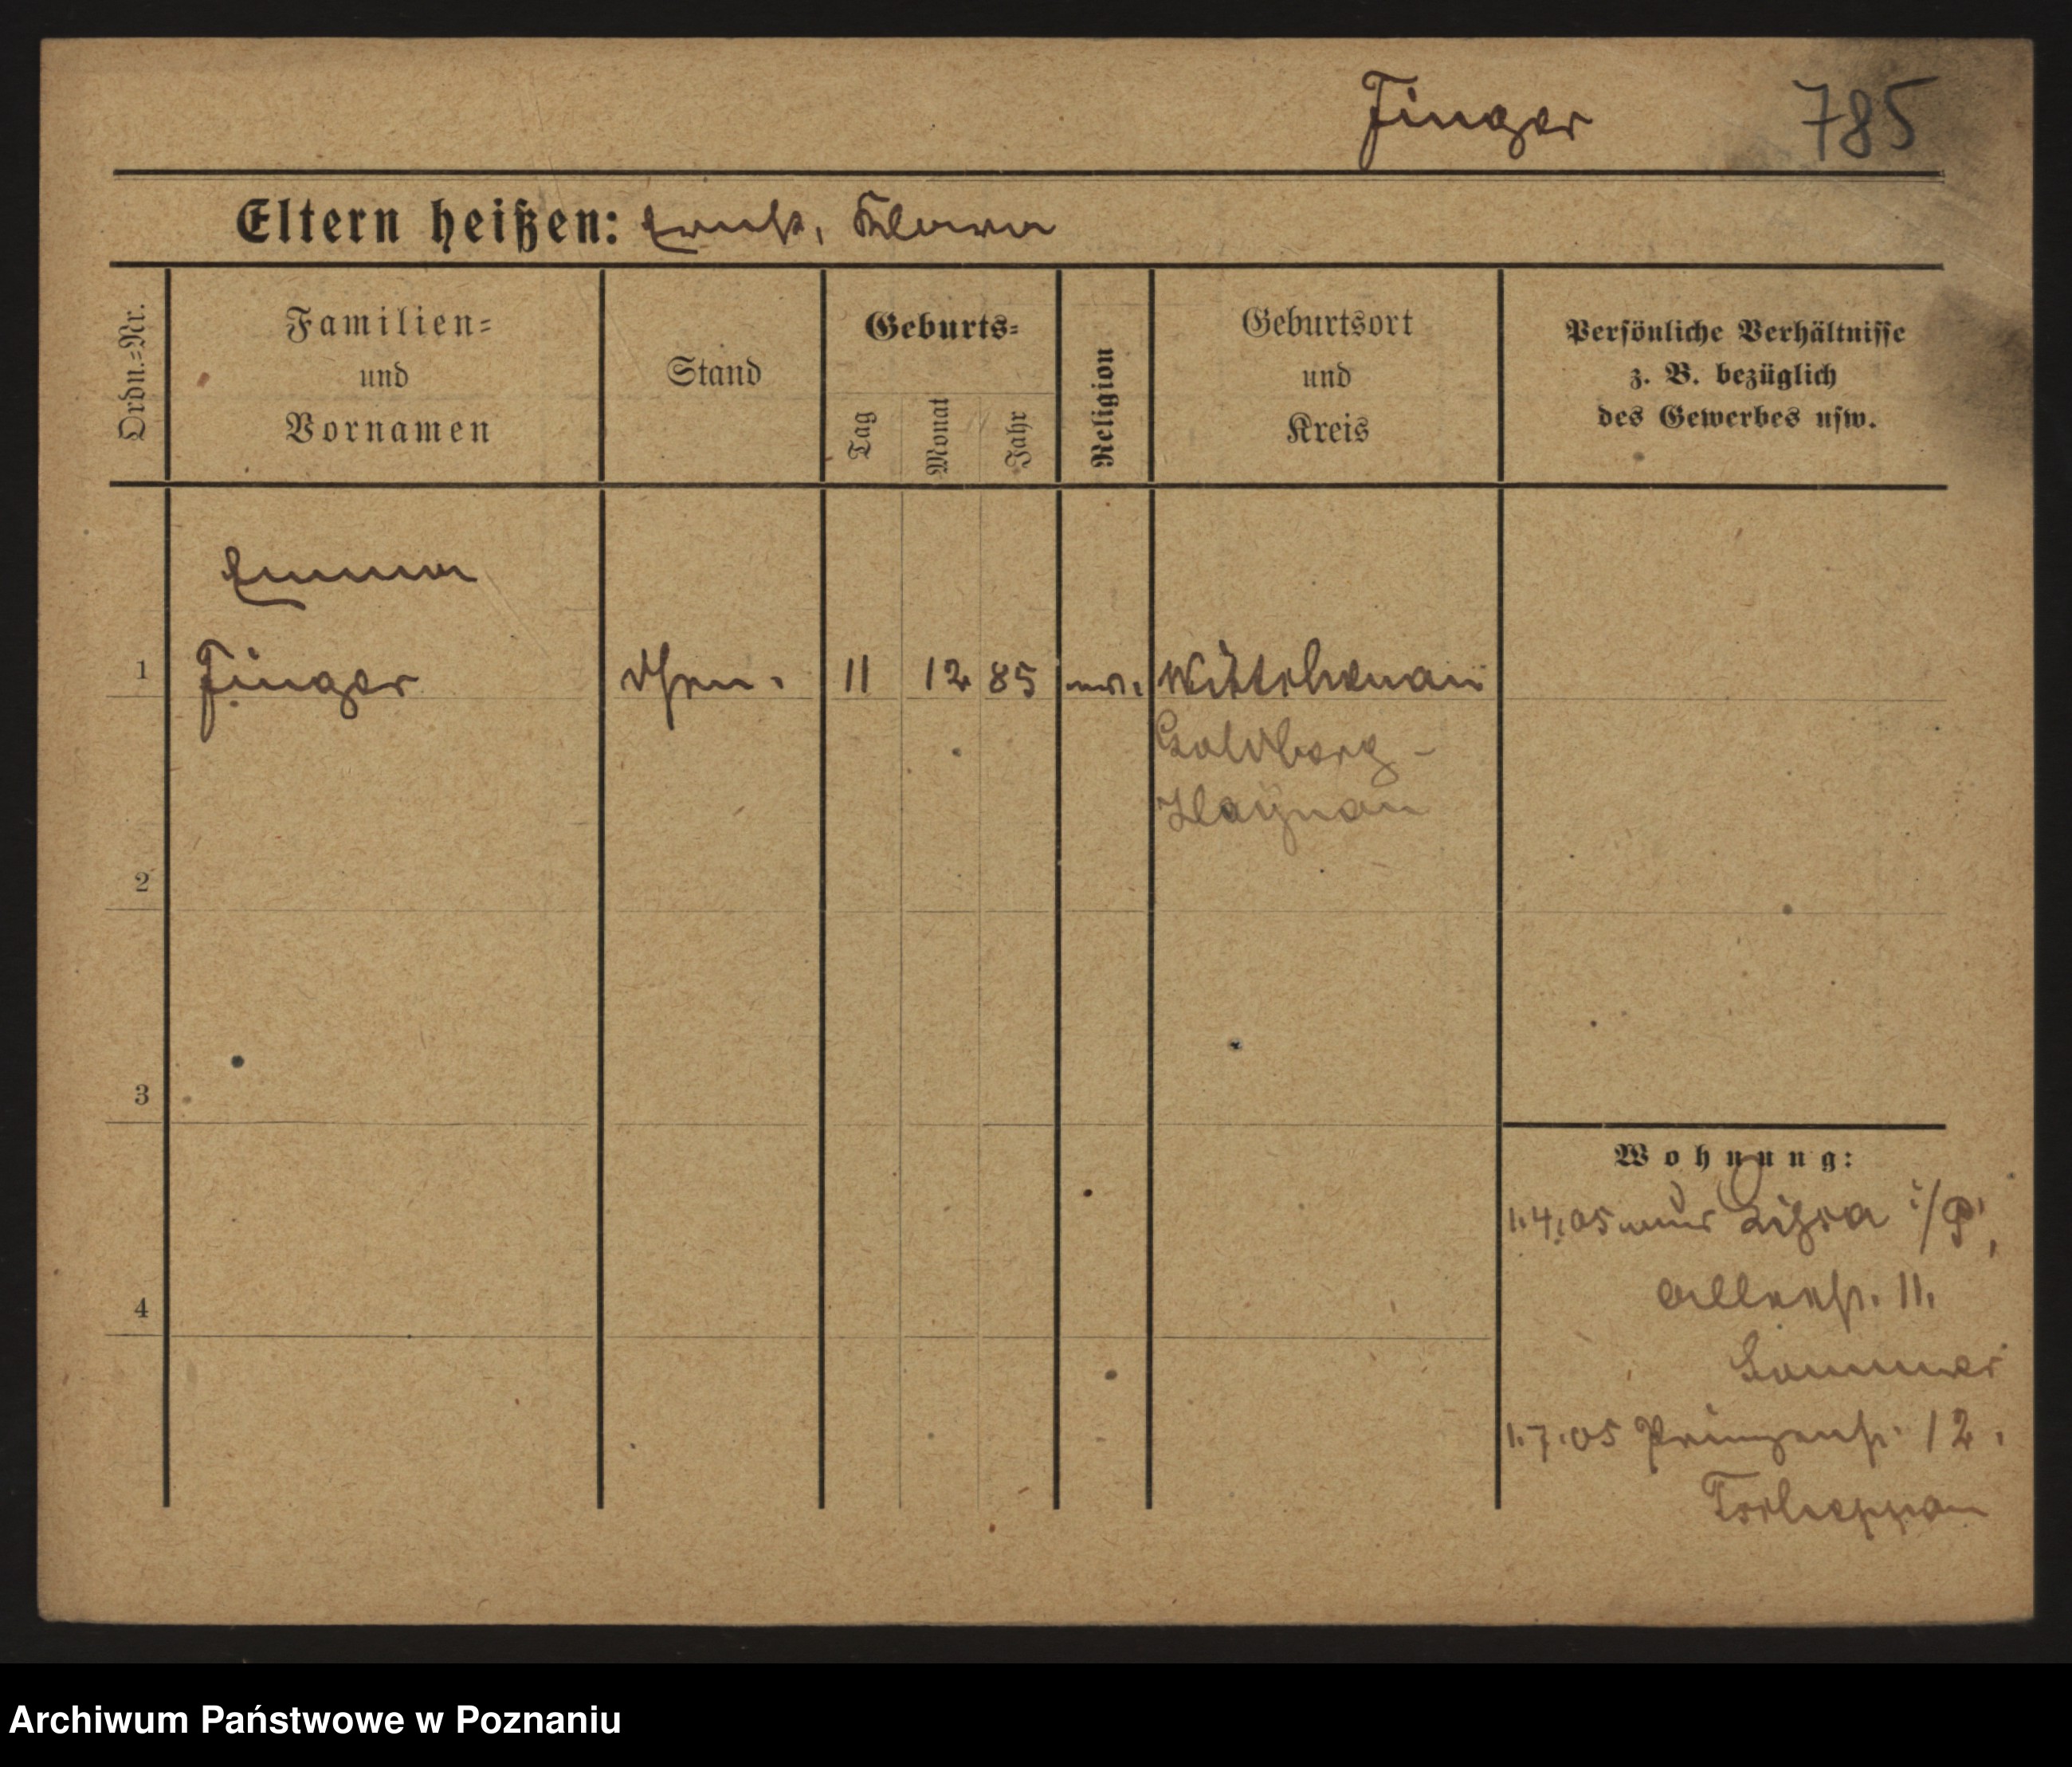 Finger 785
Eltern heißen: Ernst, Klara
Ordn.-Nr.
Familien-
und
Vornamen
Stand
Geburts-
Tag
Monat
Jahr
Religion
Geburtsort
und
Kreis
Persönliche Verhältnisse
z. B. bezüglich
des Gewerbes usw.
Emma
1 Finger 11 12 85 ev.
Goldberg-
Haynau
2
3
4
Wohnung:
1.4.05 Lissa i/P,
11.
Sommer
1.7.05 Prinzenstr. 12.
Archiwum Państwowe w Poznaniu